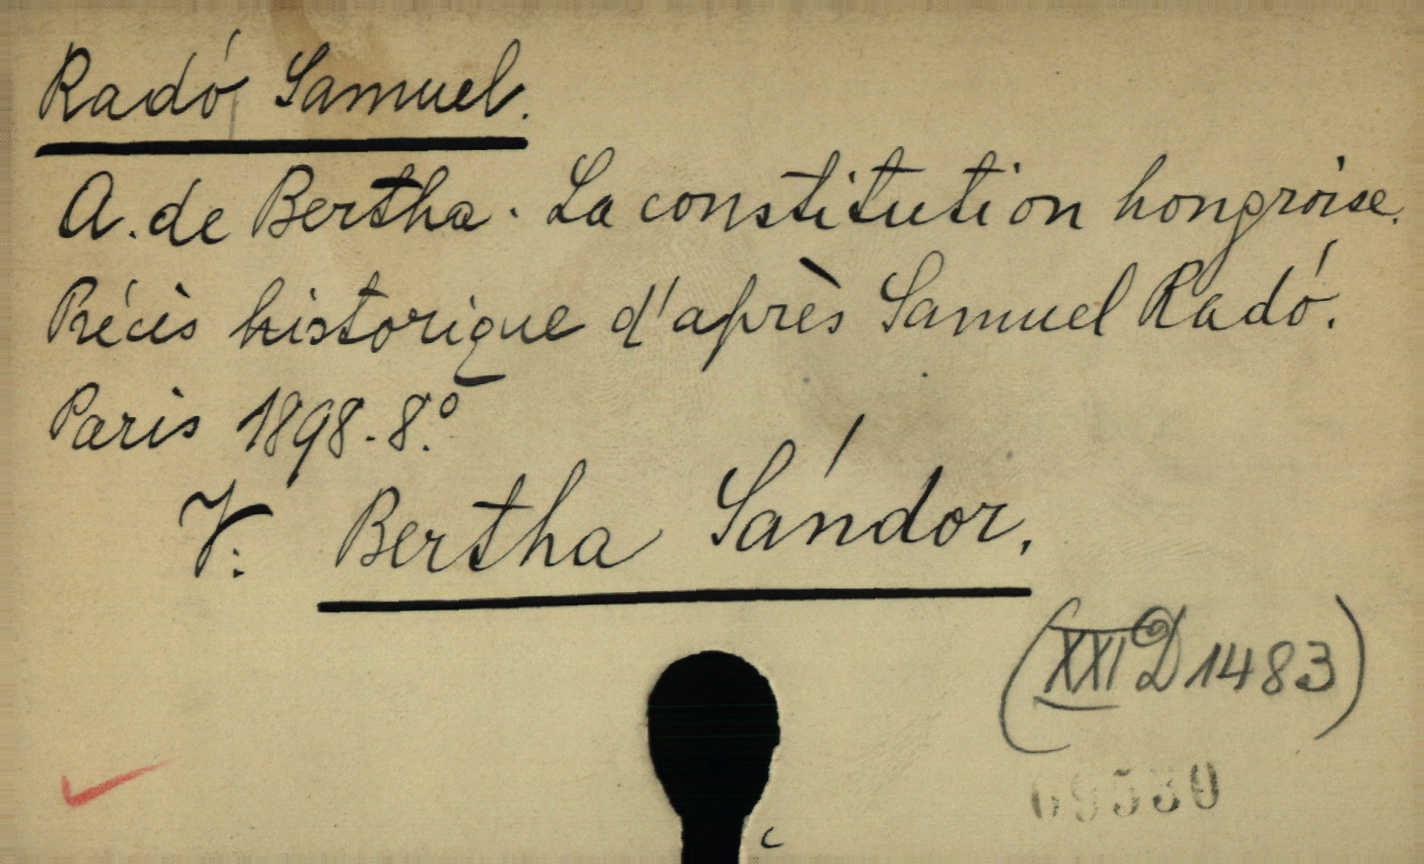 Radó Samuel.
A. de Bertha. La constitution hongroise.
Récis historique d'après Samuel Radó.
Paris 1898. 8.°
V. Bertha Sándor.
(XXI D 1483)
69530